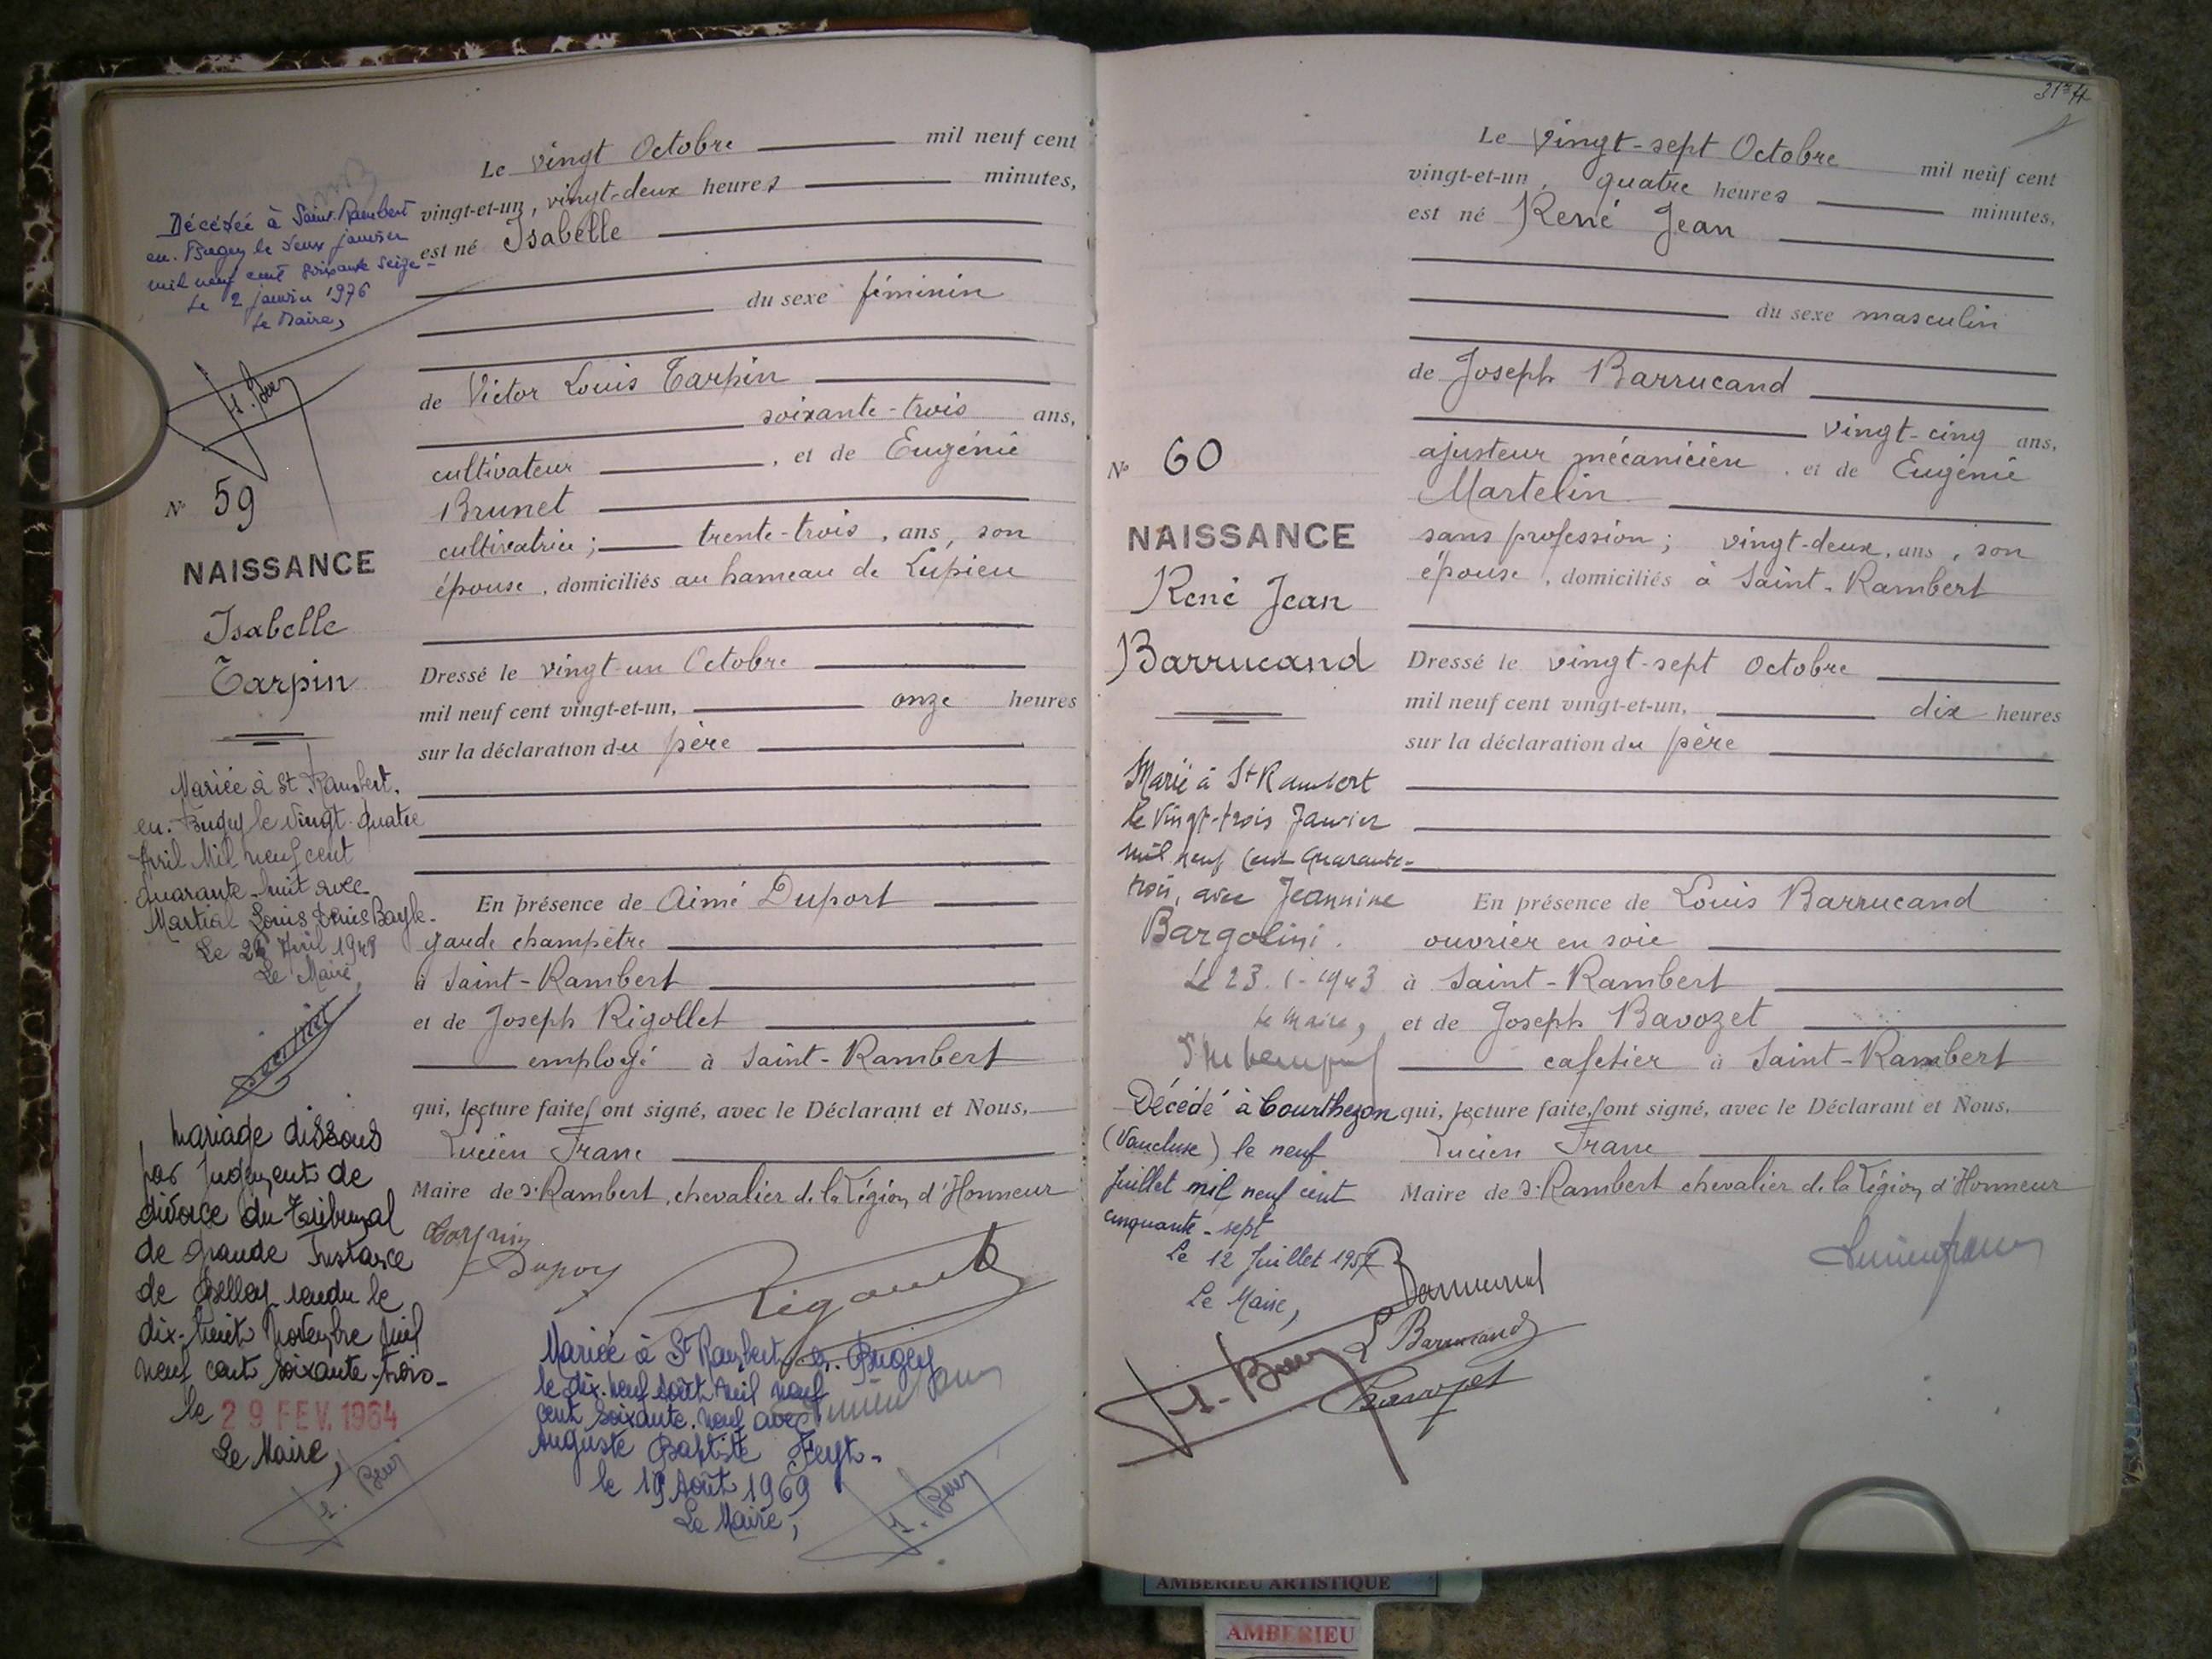 Le vingt Octobre mil neuf cent
vingt-et-un, vingt-deux heures minutes,
est né Isabelle
du sexe féminin
de Victor Louis Tarpin
soixante-trois ans,
cultivateur, et de Eugénie
Brunet
cultivatrice; trente-trois, ans, son
épouse, domiciliés au hameau de Lupieu
Dressé le vingt-un Octobre
mil neuf cent vingt-et-un, onze heures
sur la déclaration du père
En présence de Aimé Duport
garde champêtre
à Saint-Rambert
et de Joseph Rigollet
employé à Saint-Rambert
qui, lecture faite, ont signé, avec le Déclarant et Nous,
Lucien Franc
Maire de St Rambert, chevalier de la Légion d'Honneur
Décédée à Saint-Rambert
en-Bugey le deux janvier
mil neuf cent soixante seize-
Le 2 janvier 1976
Le Maire,
N° 59
NAISSANCE
Isabelle
Tarpin
Mariée à St Rambert.
en-Bugey le vingt-quatre
Avril Mil neuf cent
quarante-huit avec
Martial Louis Denis Bayle-
Le Avril 1948
Le Maire,
Mariage dissous
par Jugement de
divorce du Tribunal
de Grande Instance
de Belley rendu le
dix-huit Novembre mil
neuf cent soixante-trois-
le 29 FEV. 1964
Le Maire,
Mariée à St Rambert en-Bugey
le dix-neuf Août mil neuf
cent soixante-neuf avec
Auguste Baptiste Feyt-
le 19 Août 1969
Le Maire,
Le vingt-sept Octobre mil neuf cent
vingt-et-un, quatre heures minutes,
est né René Jean
du sexe masculin
de Joseph Barrucand
vingt-cinq ans,
ajusteur mécanicien, et de Eugénie
Martelin
sans profession; vingt-deux, ans, son
épouse, domiciliés à Saint-Rambert
Dressé le vingt-sept Octobre
mil neuf cent vingt-et-un, dix heures
sur la déclaration du père
En présence de Louis Barrucand
ouvrier en soie
à Saint-Rambert
et de Joseph Bavozet
cafetier à Saint-Rambert
qui, lecture faite, ont signé, avec le Déclarant et Nous,
Lucien Franc
Maire de St Rambert chevalier de la Légion d'Honneur
N° 60
NAISSANCE
René Jean
Barrucand
Marié à St Rambert
le Vingt-trois Janvier
mil neuf cent quarante-
trois, avec Jeannine
Bargolini.
Le 23.1-1943
Le Maire,
Décédé à Courthezon
(Vaucluse) le neuf
Juillet mil neuf cent
cinquante-sept
Le 12 Juillet 1957
Le Maire,
L Barrucand
Bavozet
AMBERIEU ARTISTIQUE
AMBERIEU